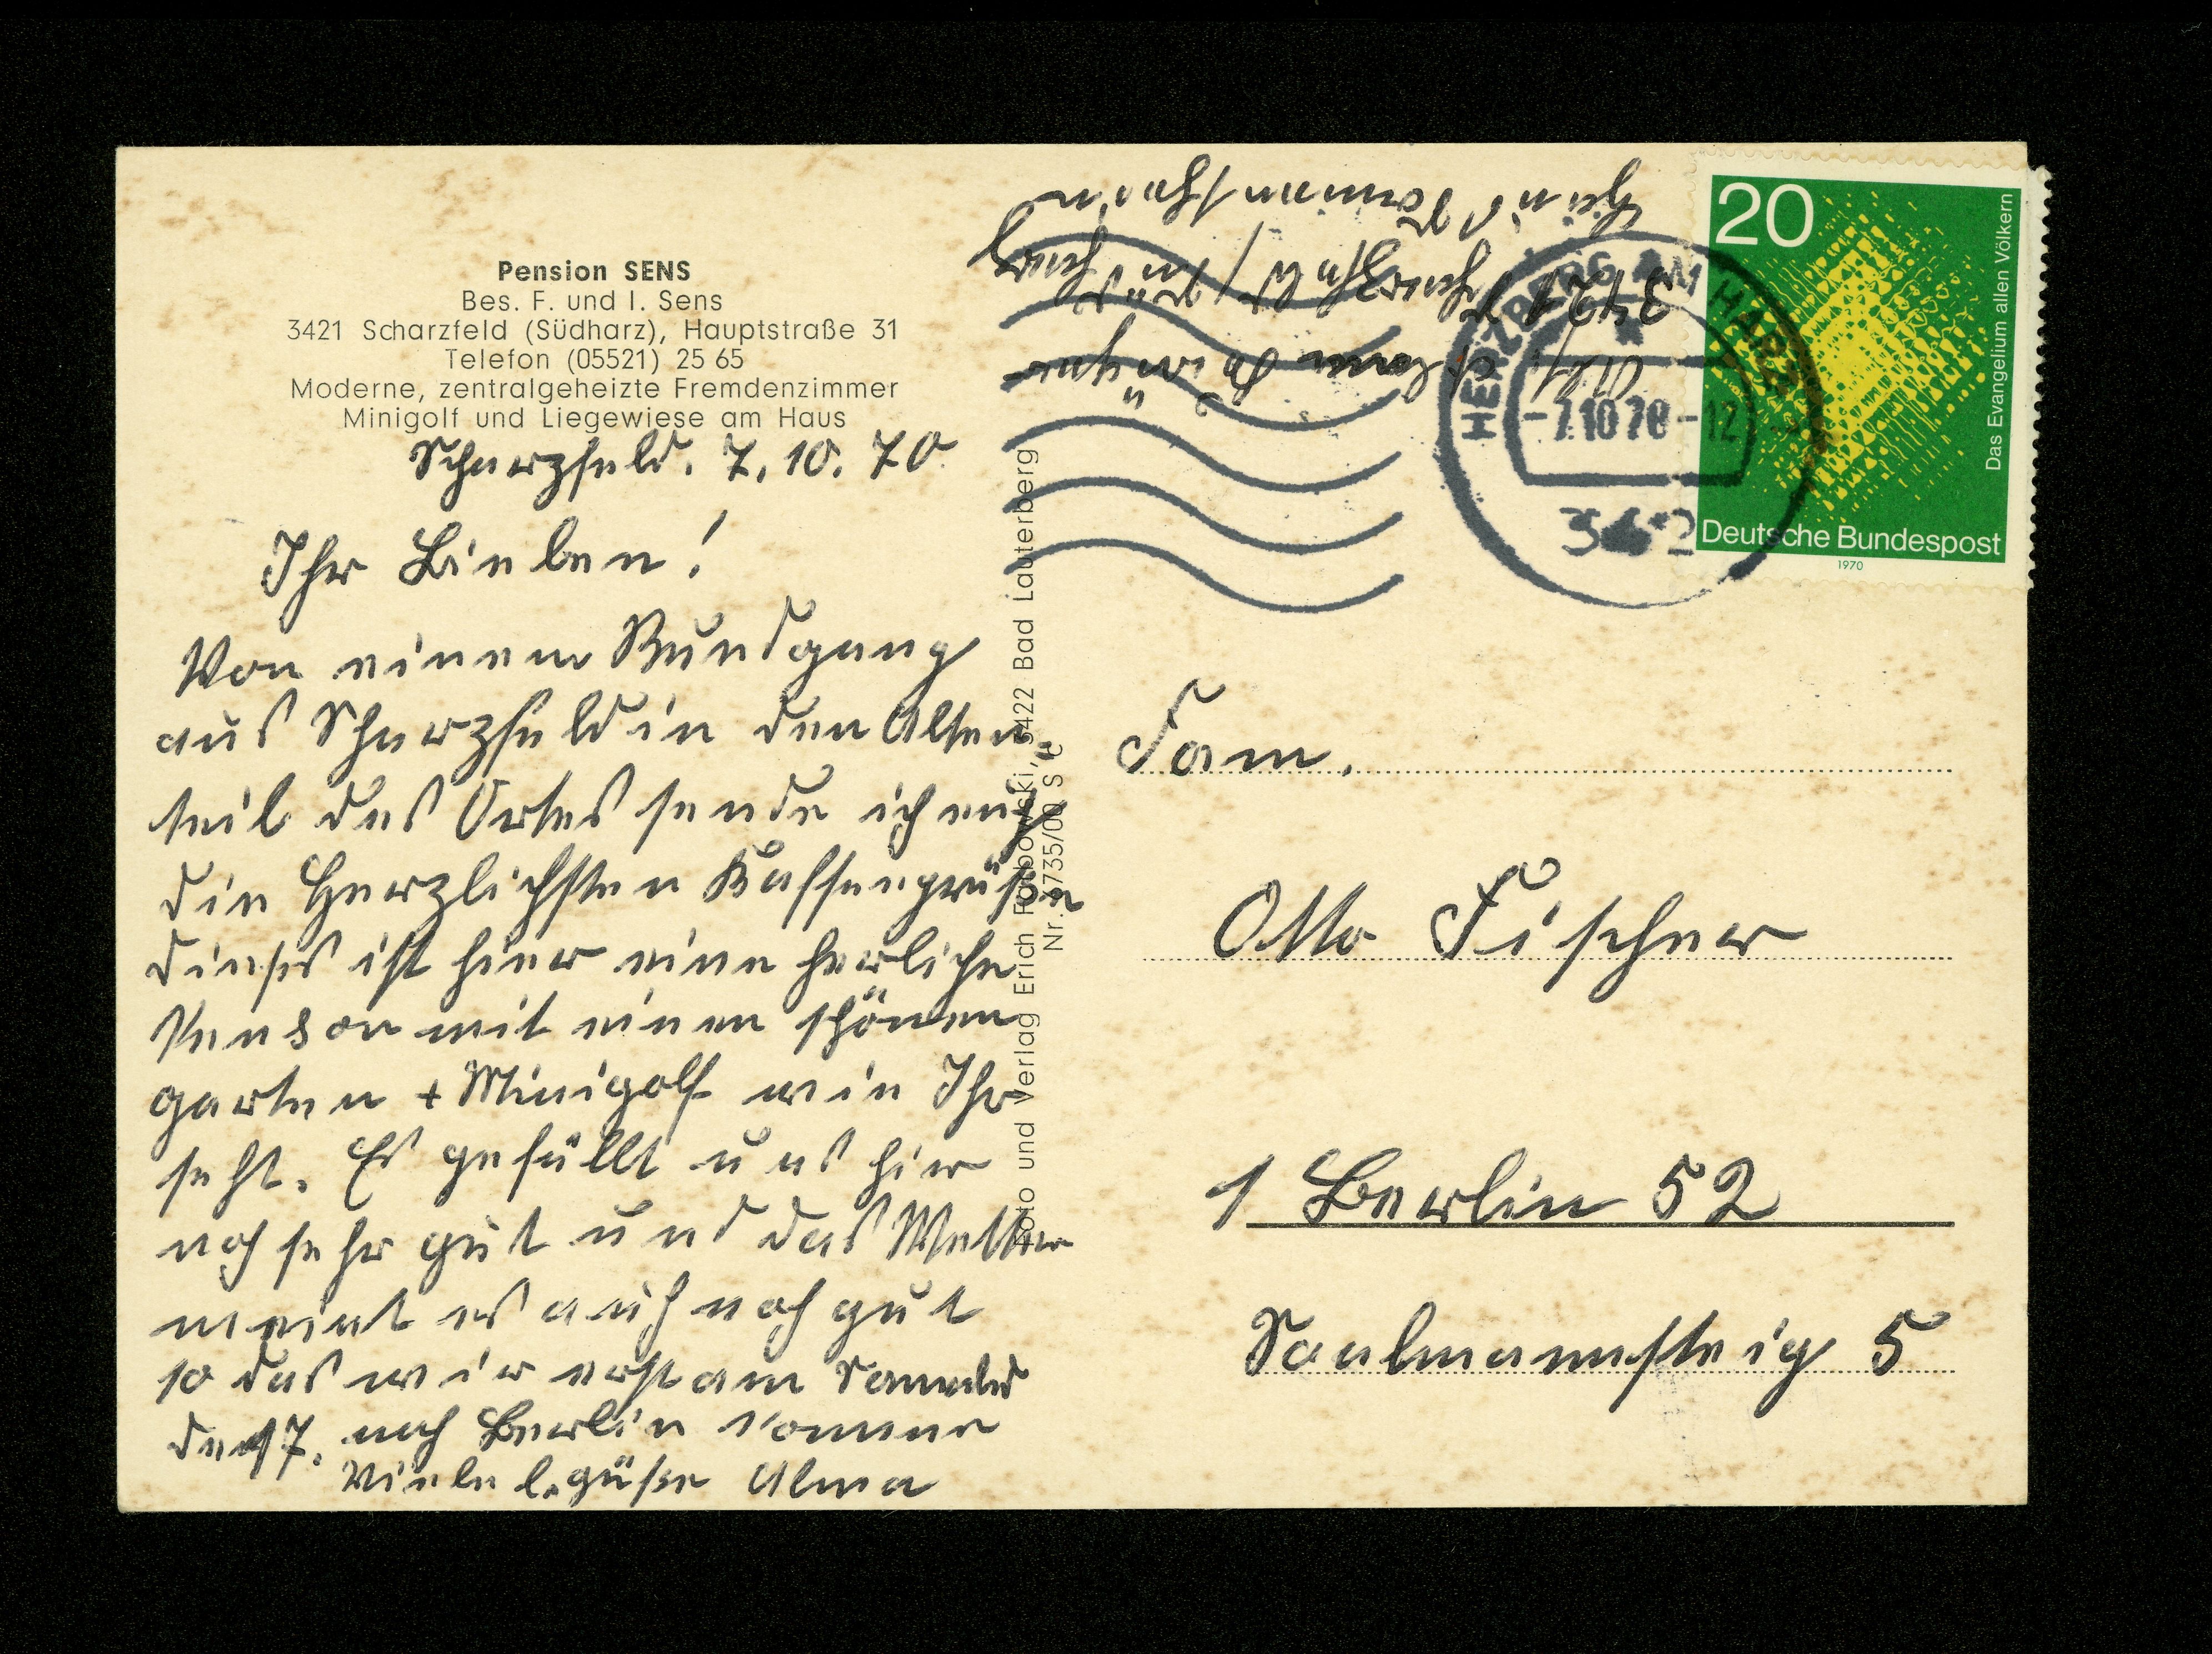 Pension SENS
Bes. F. und I. Sens
3421 Scharzfeld (Südharz), Hauptstraße 31
Telefon (05521) 25 65
Moderne, zentralgeheizte Fremdenzimmer
Minigolf und Liegewiese am Haus
Scharzfeld. 7. 10. 70.
Ihr Lieben!
Von einem Rundgang
aus Scharzfeld in den Alten
teil des Ortes sende ich euch
die Herzlichsten Kaffeegrüße
dieses ist hier eine herliche
Penson mit einen schönen
garten + Minigolf wie Ihr
seht. Es gefällt uns hier
noch sehr gut und das Wetter
meint es auch noch gut
so das wir erst am
den 17. nach Berlin komme
Viele l. güße Alma
Foto und Verlag Erich 3422 Bad Lauterberg
Nr. 67735/00 S C
Abs.
3421 Scharzfeld/Südharz
Haus
20
Das Evangelium allen Völkern
Deutsche Bundespost
1970
HERZBERG AM HARZ
-7.10.70-12
Fam.
Otto Fischer
1 Berlin 52
Saalmannsteig 5